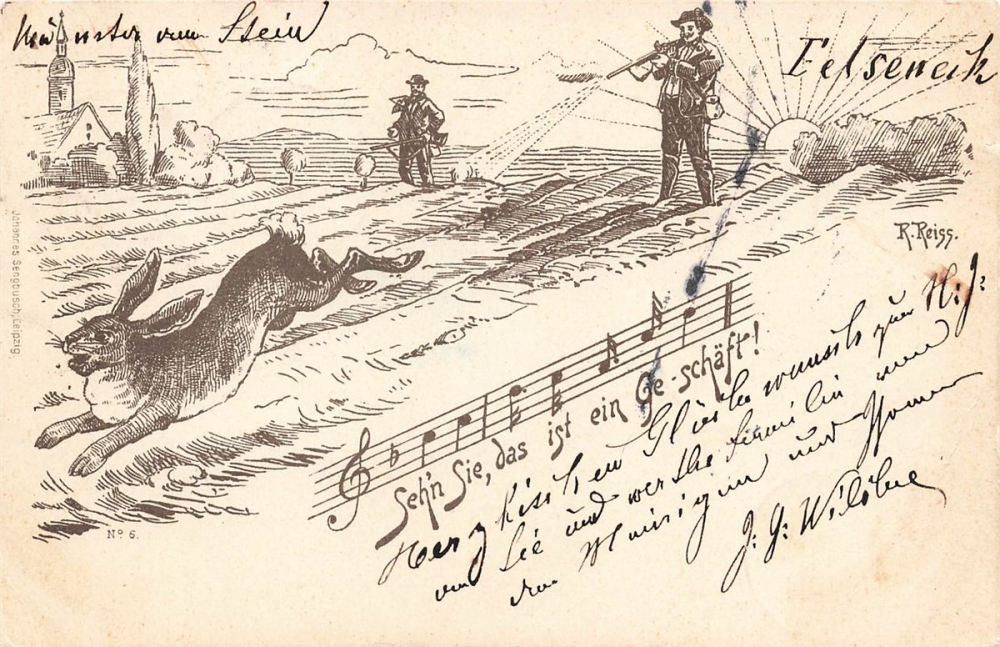 Münster am Stein
Felseneck
R. Reiss.
Johannes Sengbusch, Leipzig
Seh'n Sie, das ist ein Ge-schäft!
No 6.
Herzlichen Glückwunsch zum N. J.
an Sie und werthe Familie und
den und
J. J.